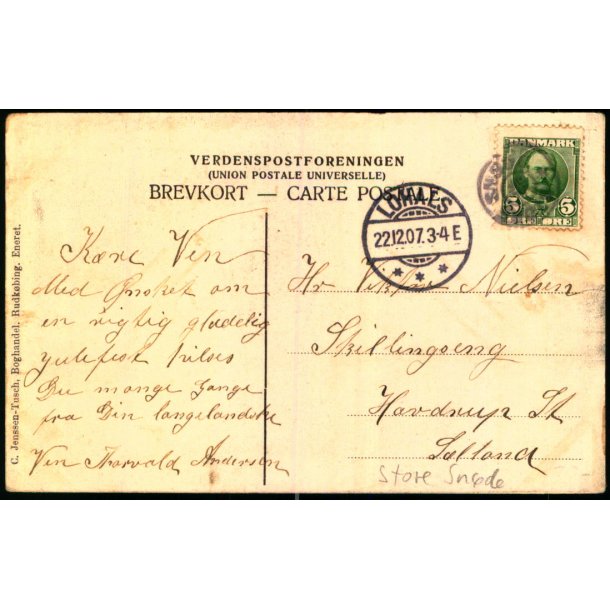 VERDENSPOSTFORENINGEN
(UNION POSTALE UNIVERSELLE)
BREVKORT — CARTE POSTALE
DANMARK
5 5
ØRE ØRE
LOHALS
22.12.07.3-4 E
Kære Ven
Med Ønsket om
en rigtig glædelig
julefest hilses
Du mange Gange
fra Din langelandske
Ven Thorvald Andersen
Hr Viktor Nielsen
Skillingseng
Havdrup St
Sjælland
Store Snøde
C. Jenssen-Tusch, Boghandel, Rudkøbing. Eneret.